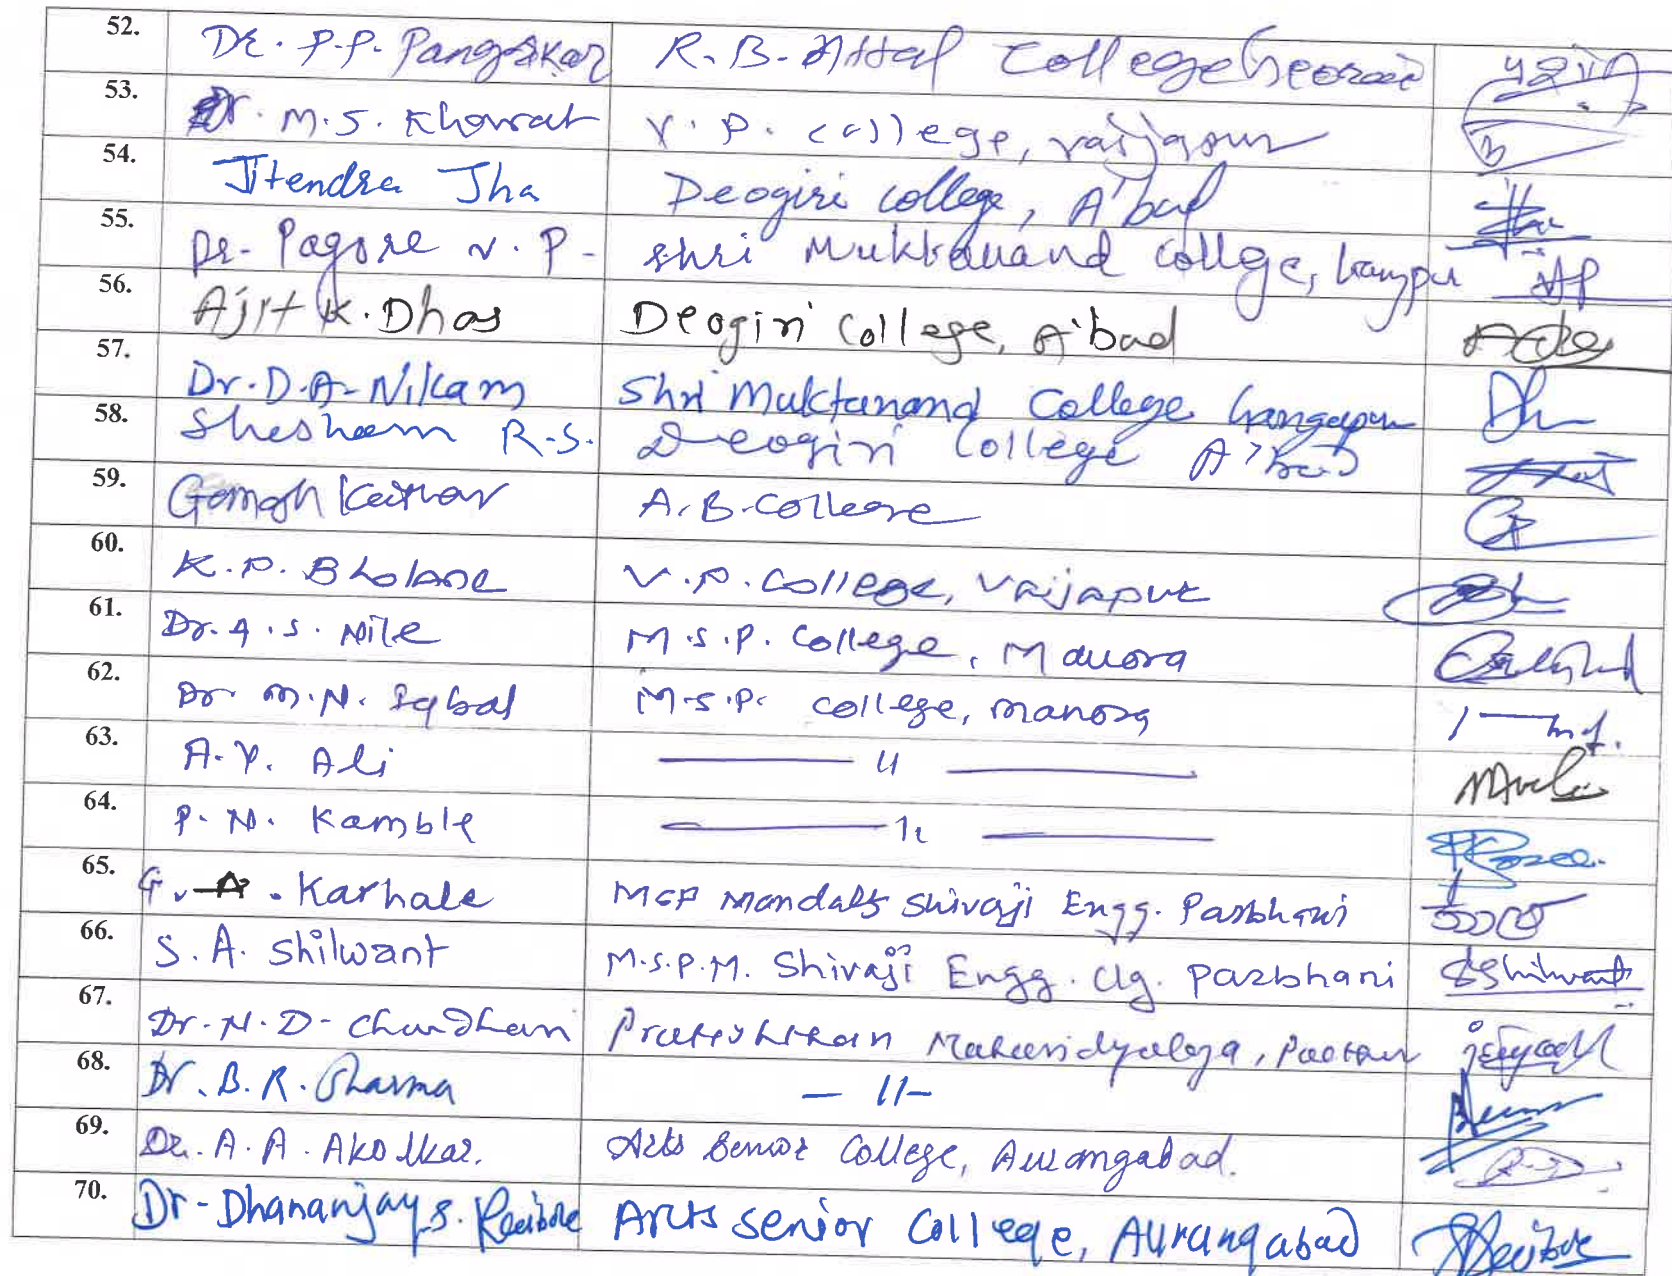 52. Dr. P.P. Pangrikar R.B. Attal College Georai
53. Dr. M.S. Kharat V.P. College, Vaijapur
54. Jitendra Jha Deogiri College, A'bad
55. Dr. Pagore V.P. Shri Muktanand College, Gangpur
56. Ajit K. Dhas Deogiri College, A'bad
57. Dr. D.A. Nikam Shri Muktanand College Gangapur
58. Shesham R.S. Deogiri College A'bad
59. A.B. College
60. K.P. Bholane V.P. College, Vaijapur
61. Dr. A.S. Nile M.S.P. College, Manora
62. Dr. M.N. Iqbal M.S.P. College, Manora
63. A.Y. Ali — 11 —
64. P.N. Kamble — 11 —
65. G. A. Karhale MSP Mandal's Shivaji Engg. Parbhani
66. S.A. Shilwant M.S.P.M. Shivaji Engg. Clg. Parbhani SShilwant
67. Dr. N.D. Chaudhari Pratishthan Mahavidyalaya, Paithan
68. Dr. B.R. Sharma — 11 —
69. Dr. A.A. Akolkar. Arts Senior College, Aurangabad.
70. Dr. Dhananjay S. Arts Senior College, Aurangabad